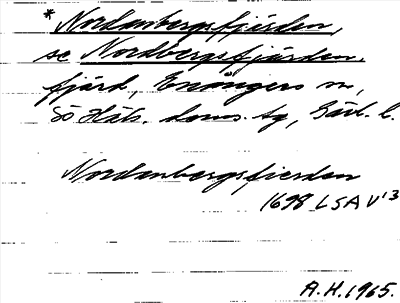 * Nordanbergsfjärden,
se Nordbergsfjärden.
fjärd, Enångers sn,
Sö Häls. doms. tg, Gävl. l.
Nordanbergsfierden
1698 LSA V¹³
A.H. 1965.